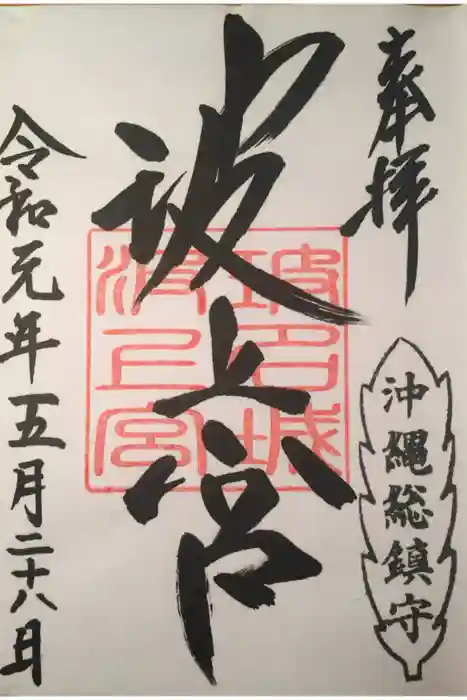 奉拝
沖縄総鎮守
波上宮
波名城
波上宮
令和元年五月二十八日